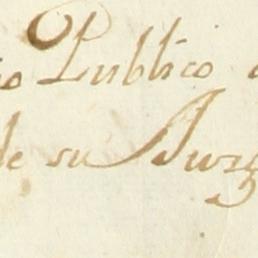 io Publico
de su Juzg